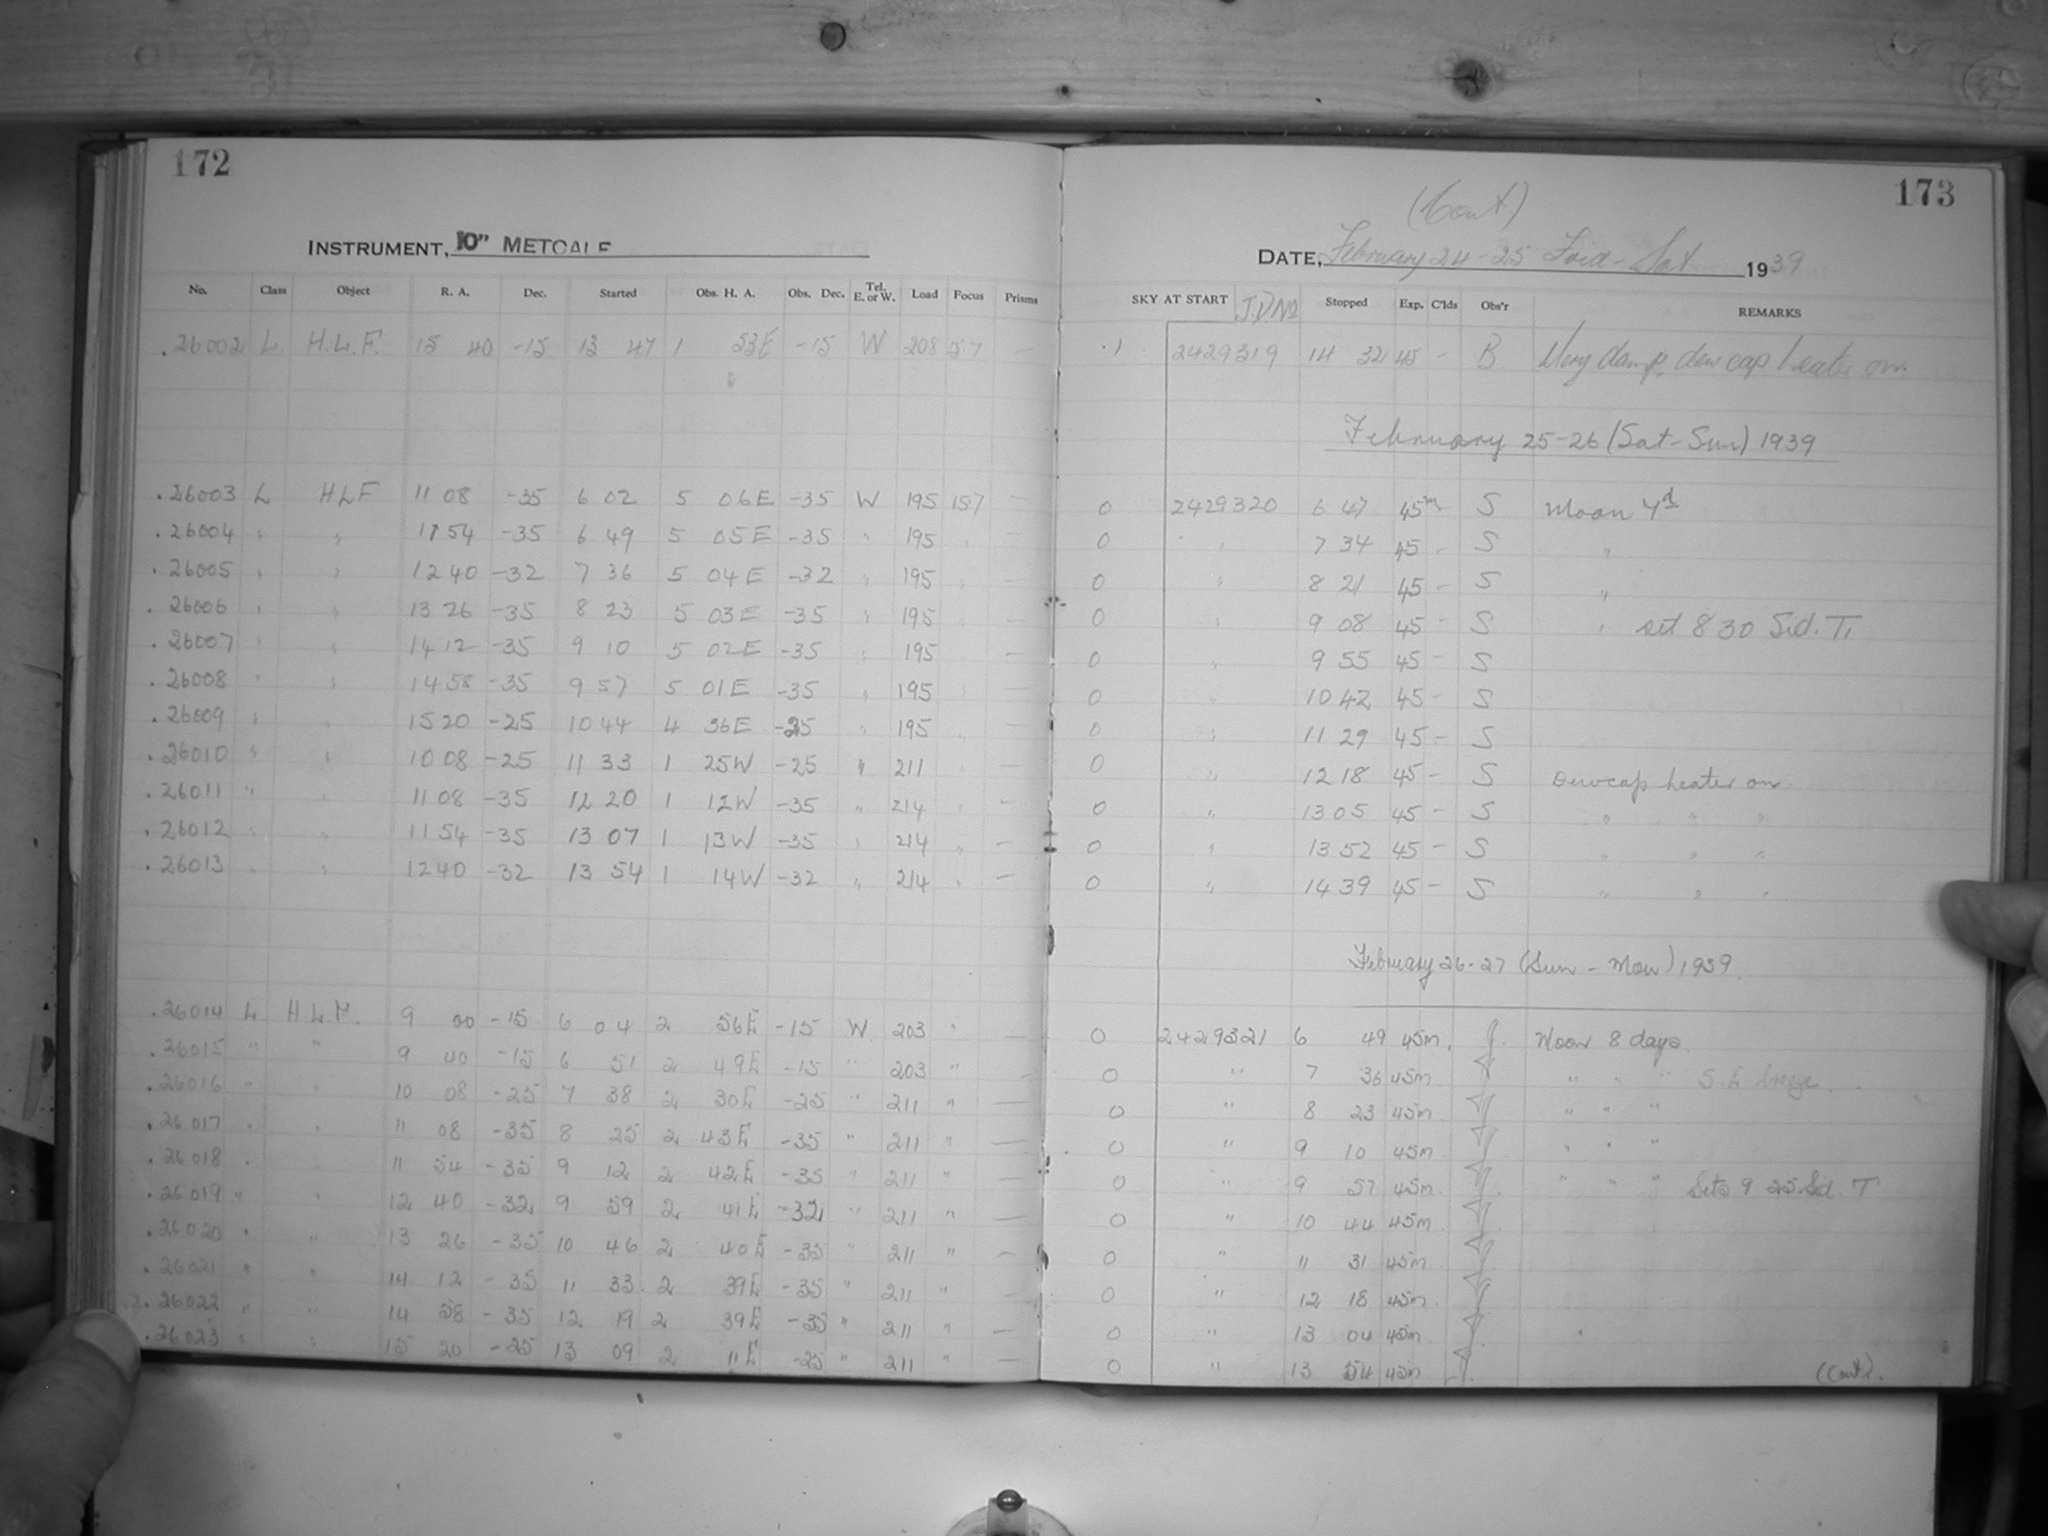 172
INSTRUMENT, 10" METCALF
No. Class Object R. A. Dec. Started Obs. H. A. Obs. Dec. Tel. E. or W. Load Focus Prisms
.26002 L. H.L.F. 15 40 -15 13 47 1 53E -15 W 208 15.7 —
.26003 L HLF 11 08 -35 6 02 5 06E -35 W 195 157 —
.26004 " " 11 54 -35 6 49 5 05E -35 " 195 " —
.26005 " " 12 40 -32 7 36 5 04E -32 " 195 " —
.26006 " " 13 26 -35 8 23 5 03E -35 " 195 " —
.26007 " " 14 12 -35 9 10 5 02E -35 " 195 " —
.26008 " " 14 58 -35 9 57 5 01E -35 " 195 " —
.26009 " " 15 20 -25 10 44 4 36E -25 " 195 " —
.26010 " " 10 08 -25 11 33 1 25W -25 " 211 " —
.26011 " " 11 08 -35 12 20 1 12W -35 " 214 " —
.26012 " " 11 54 -35 13 07 1 13W -35 " 214 " —
.26013 " " 12 40 -32 13 54 1 14W -32 " 214 " —
.26014 L H L F. 9 00 -15 6 04 2 56E -15 W 203 " —
.26015 " " 9 40 -15 6 51 2 49E -15 " 203 " —
.26016 " " 10 08 -25 7 38 2 30E -25 " 211 " —
.26017 " " 11 08 -35 8 25 2 43E -35 " 211 " —
.26018 " " 11 54 -35 9 12 2 42E -35 " 211 " —
.26019 " " 12 40 -32 9 59 2 41E -32 " 211 " —
.26020 " " 13 26 -35 10 46 2 40E -35 " 211 " —
.26021 " " 14 12 -35 11 33 2 39E -35 " 211 " —
.26022 " " 14 58 -35 12 19 2 39E -35 " 211 " —
.26023 " " 15 20 -25 13 09 2 11E -25 " 211 " —
173
(Cont.)
DATE, February 24-25 Frid-Sat 1939
SKY AT START J.D.No Stopped Exp. C'lds Obs'r REMARKS
.1 2429319 14 32 45 - B. Very damp, dew cap heater on.
February 25-26 (Sat-Sun) 1939
0 2429320 6 47 45m - S Moon 7d
0 " 7 34 45 - S "
0 " 8 21 45 - S "
0 " 9 08 45 - S " set 8 30 Sid. T.
0 " 9 55 45 - S
0 " 10 42 45 - S
0 " 11 29 45 - S
0 " 12 18 45 - S Dewcap heater on.
0 " 13 05 45 - S " " "
0 " 13 52 45 - S " " "
0 " 14 39 45 - S " " "
February 26-27 (Sun - Mon) 1939.
0 2429321 6 49 45m. J. Moon 8 days.
0 " 7 36 45m " " " S.E breeze
0 " 8 23 45m " " "
0 " 9 10 45m " " "
0 " 9 57 45m " " " Sets 9 25 Sid. T
0 " 10 44 45m
0 " 11 31 45m
0 " 12 18 45m
0 " 13 04 45m
0 " 13 54 45m J.
(Cont).